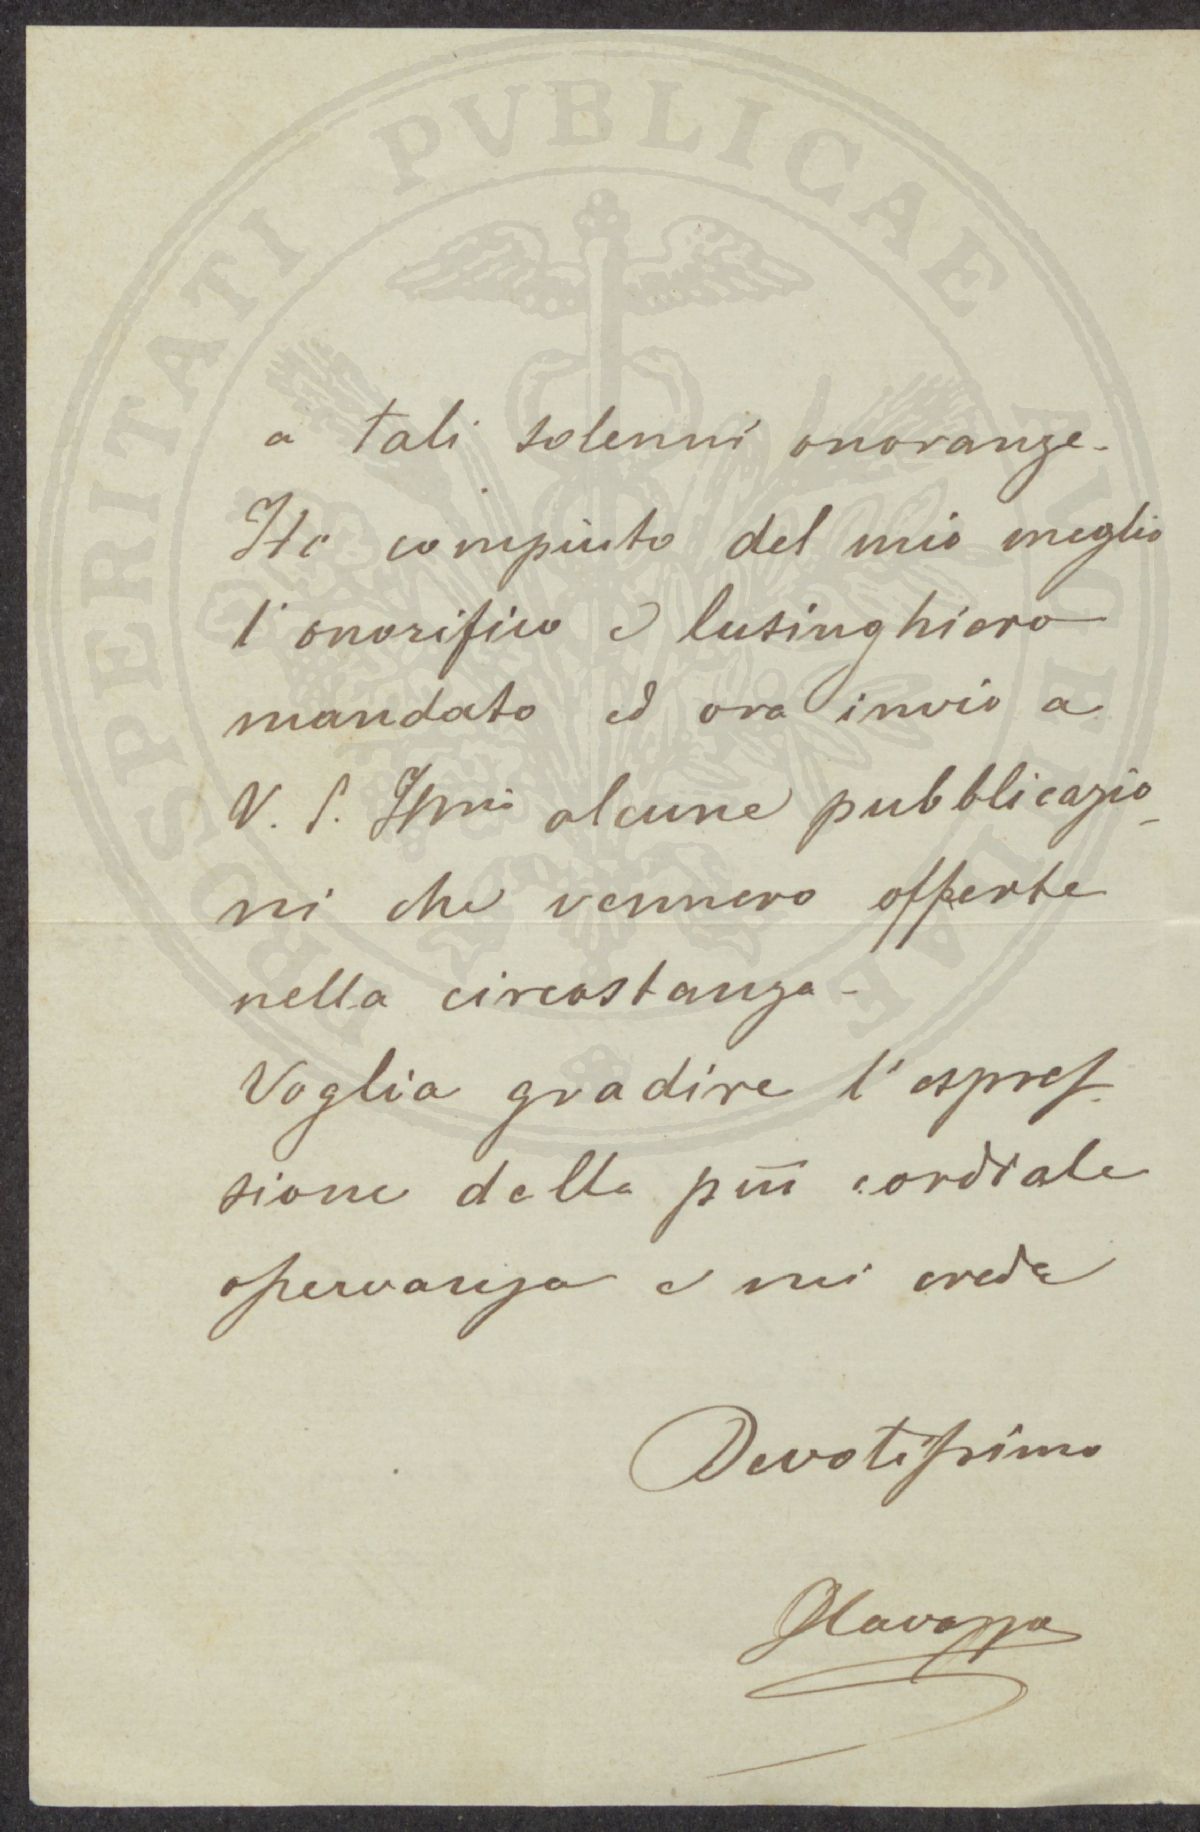 PROSPERITATI PVBLICAE AVGENDAE
a tali solenni onoranze.
Ho compiuto del mio meglio
l'onorifico e lusinghiero
mandato ed ora invio a
V. S. Illma alcune pubblicazio
ni che vennero offerte
nella circostanza -
Voglia gradire l'espres-
sione della più cordiale
osservanza e mi creda
Devotissimo